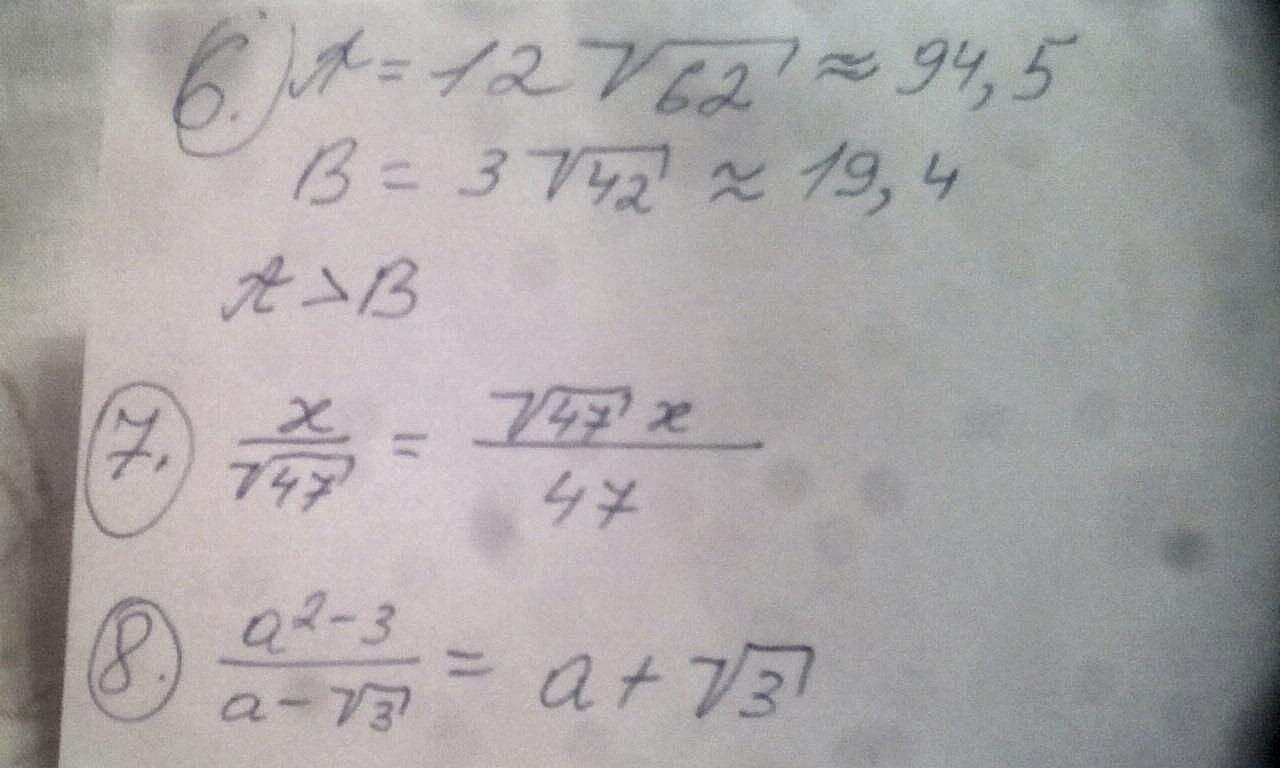 6.) A = 12 √62 ≈ 94,5
B = 3 √42 ≈ 19,4
A > B
7. x/√47 = √47 x/47
8. (a² - 3)/(a - √3) = a + √3